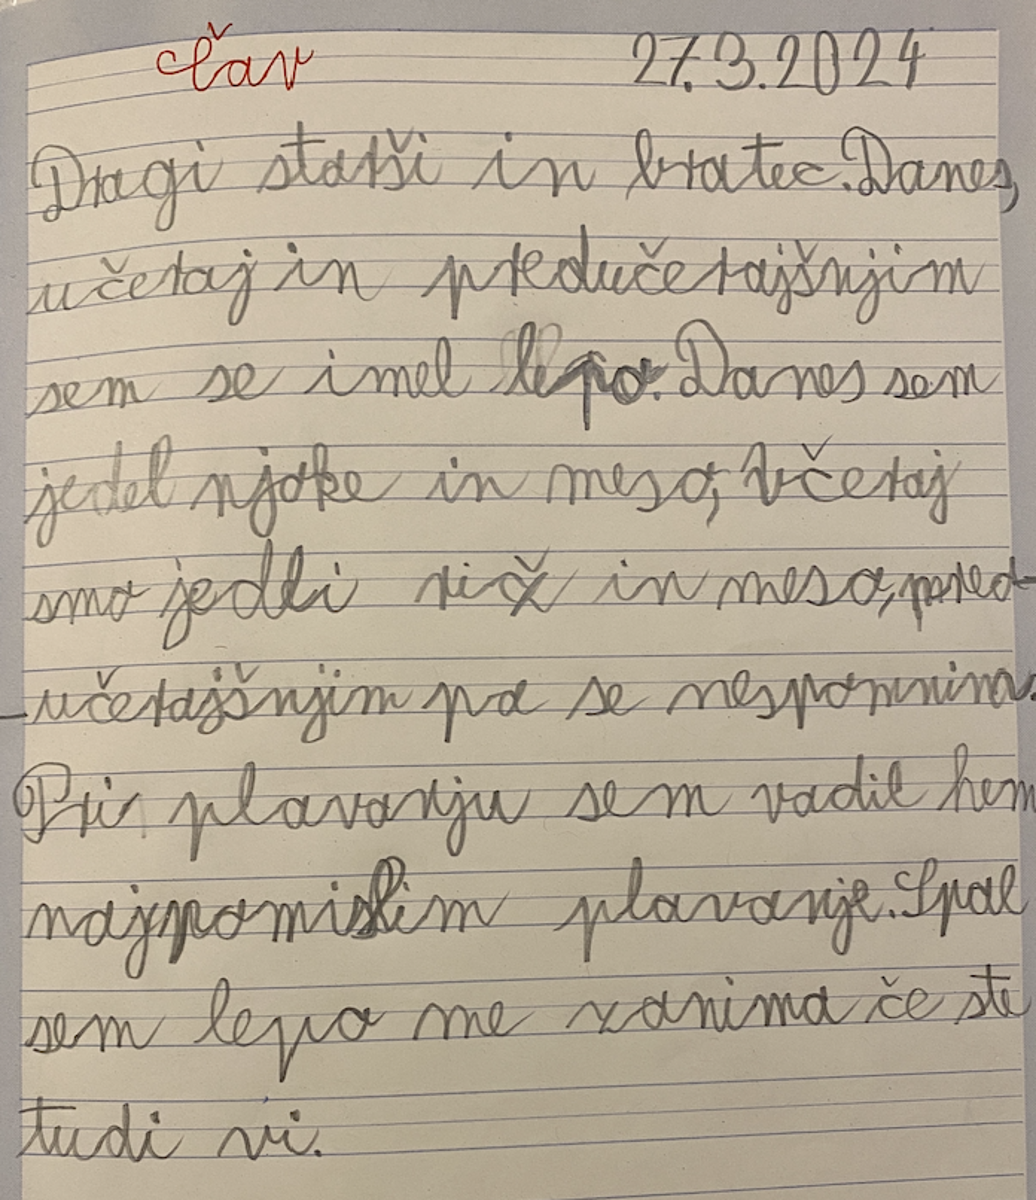 čav 27.3.2024
Dragi starši in bratec. Danes,
učeraj in predučerajšnjim
sem se imel lepo. Danes sem
jedel njoke in meso, včeraj
smo jedli riž in meso, pred-
-učerajšnjim pa se nespomnim
Pri plavanju sem vadil
najpomislim plavanje. Spal
sem lepo me zanima če ste
tudi vi.